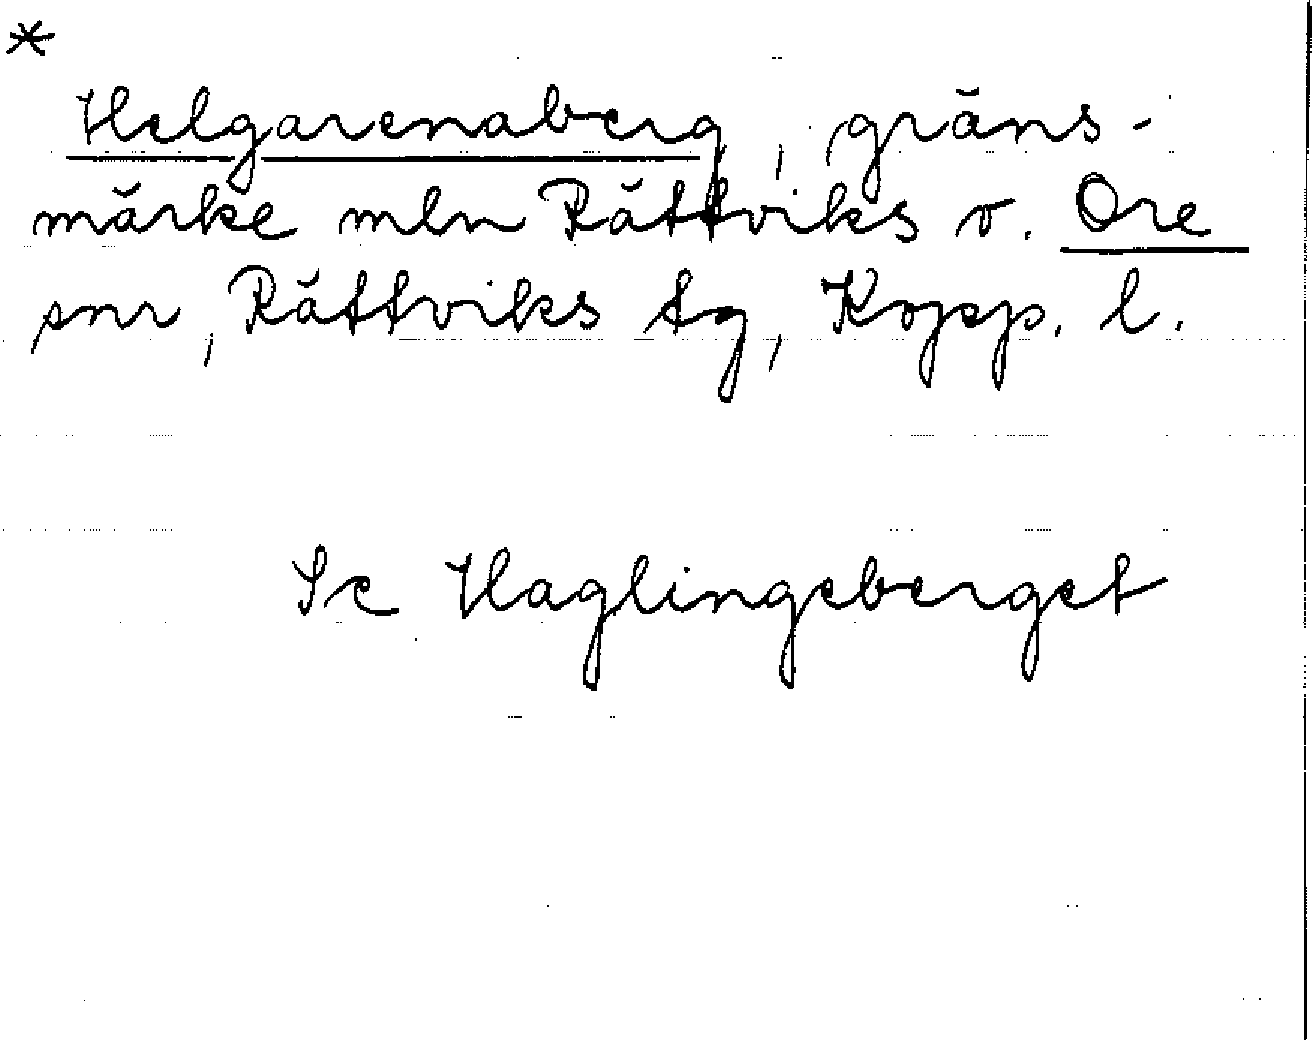 *
Helgarenaberg, gräns-
märke mln Rättviks o. Ore
snr, Rättviks tg, Kopp. l.
Se Haglingeberget